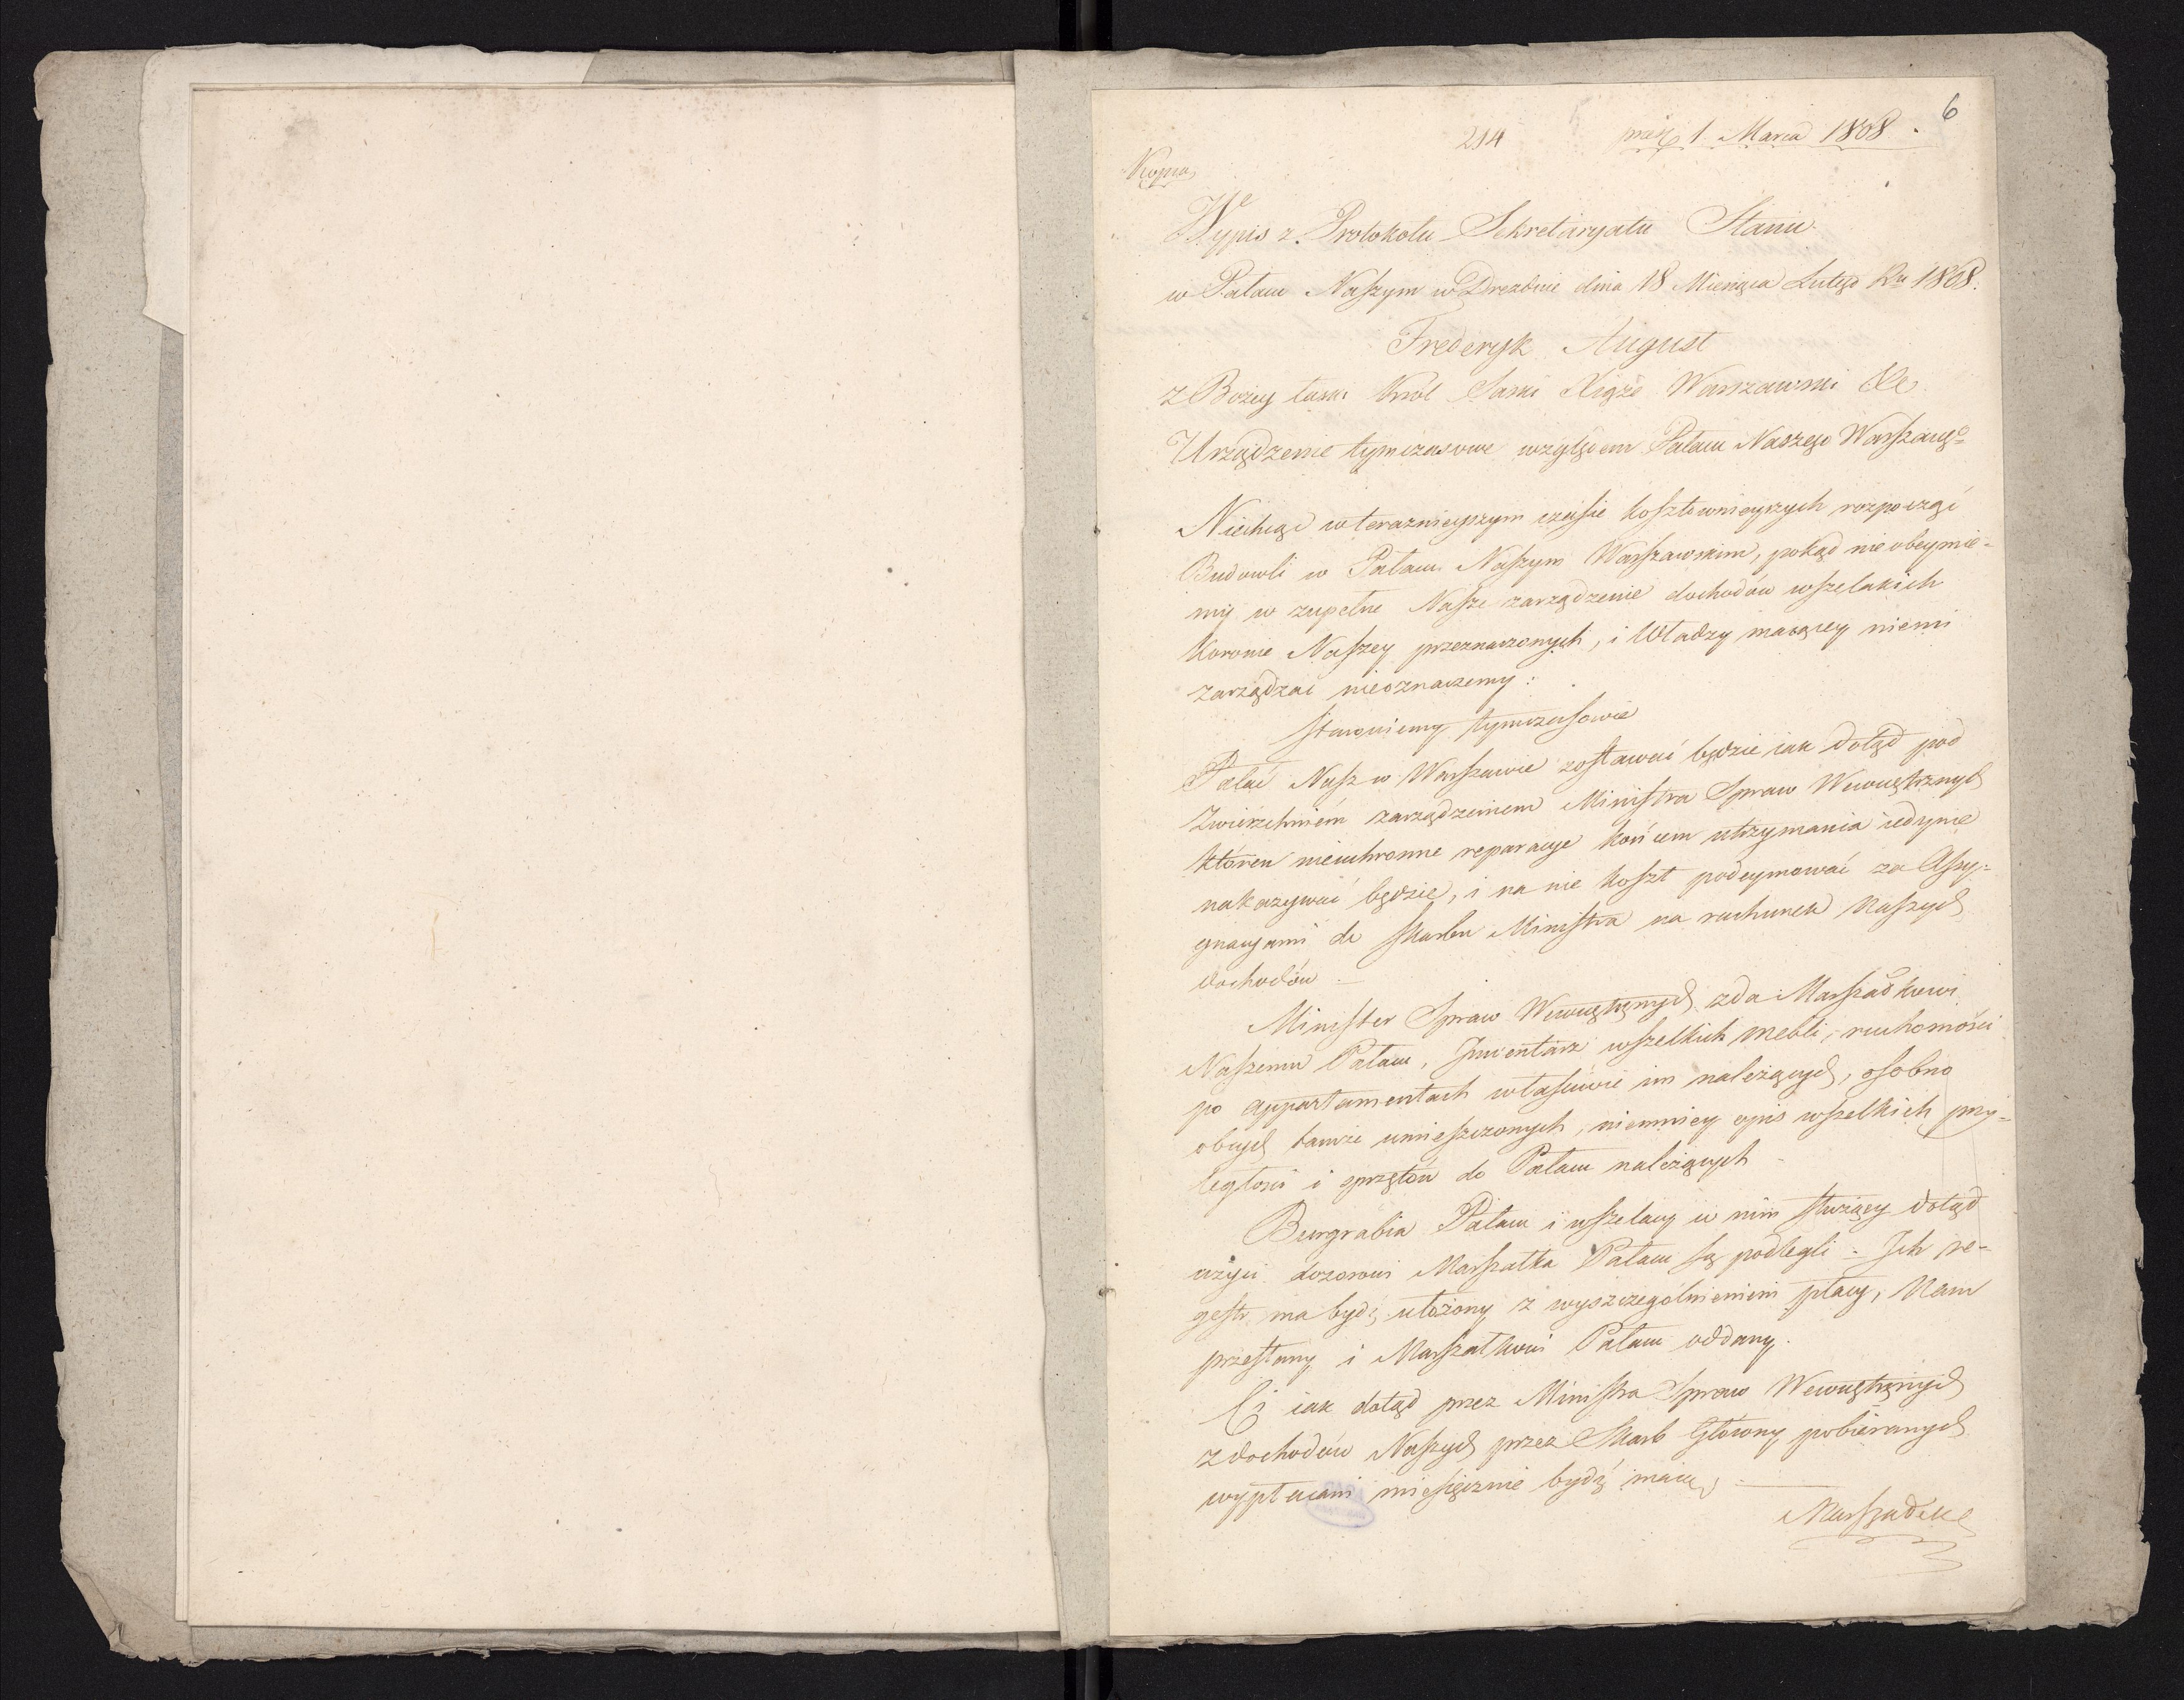 6
214 1. Marca 1808.
Kopia
Wypis z Protokołu Sekretaryatu Stanu.
w Pałacu Naszym w Dreznie dnia 18 Miesiąca Lutego Ru 1808.
Frederyk August
z Bożey łaski Król Saski Xiąże Warszawski &c
Urządzenie tymczasowe względem Pałacu Naszego Warszawgo
Niechcąc w teraznieyszym czasie kosztownieyszych rozpocząć
Budowli w Pałacu Naszym Warszawskim, pokąd nie obeymie-
my w zupełne Nasze zarządzenie dochodów wszelakich
Koronie Naszey przeznaczonych, i Władzy maiącey niemi
zarządzać nieoznaczemy:
stanowiemy tymczasowie
Pałac Nasz w Warszawie zostawać będzie iak dotąd pod
Zwierzchniém zarządzeniem Ministra Spraw Wewnętrznych
któren nieuchronne reparacye końcem utrzymania iedynie
nakazywać będzie, i na nie koszt podeymować za Assy-
gnacyami do skarbu Ministra na rachunek Naszych
dochodów.
Minister Spraw Wewnętrznych zda Marszałkowi
Naszemu Pałacu, Inwentarz wszelkich mebli, ruchomości
po appartamentach właściwie im należących, osobno
obcych tamże umieszczonych, niemniey opis wszelkich przy-
ległości i sprzętów do Pałacu należących
Burgrabia Pałacu i wszelacy w nim służący dotąd
użyci dozorowi Marszałka Pałacu są podlegli. Ich re-
gestr ma bydź ułożony z wyszczególnieniem płacy, Nam
przesłany i Marszałkowi Pałacu oddany.
Ci iak dotąd przez Ministra Spraw Wewnętrznych
z dochodów Naszych przez Skarb Główny pobieranych
wypłacani miesięcznie bydź maią